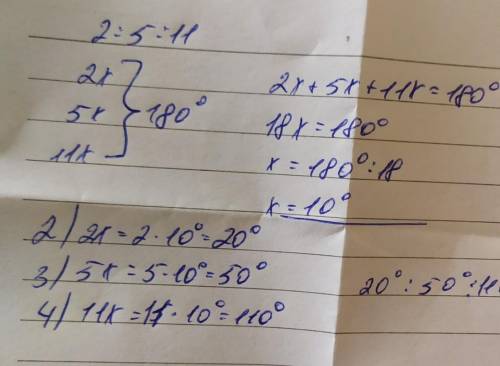 2:5:11
2x
5x } 180°
11x
2x+5x+11x=180°
18x=180°
x=180°:18
x=10°
2) 2x=2·10°=20°
3) 5x=5·10°=50°
4) 11x=11·10°=110°
20°:50°:11